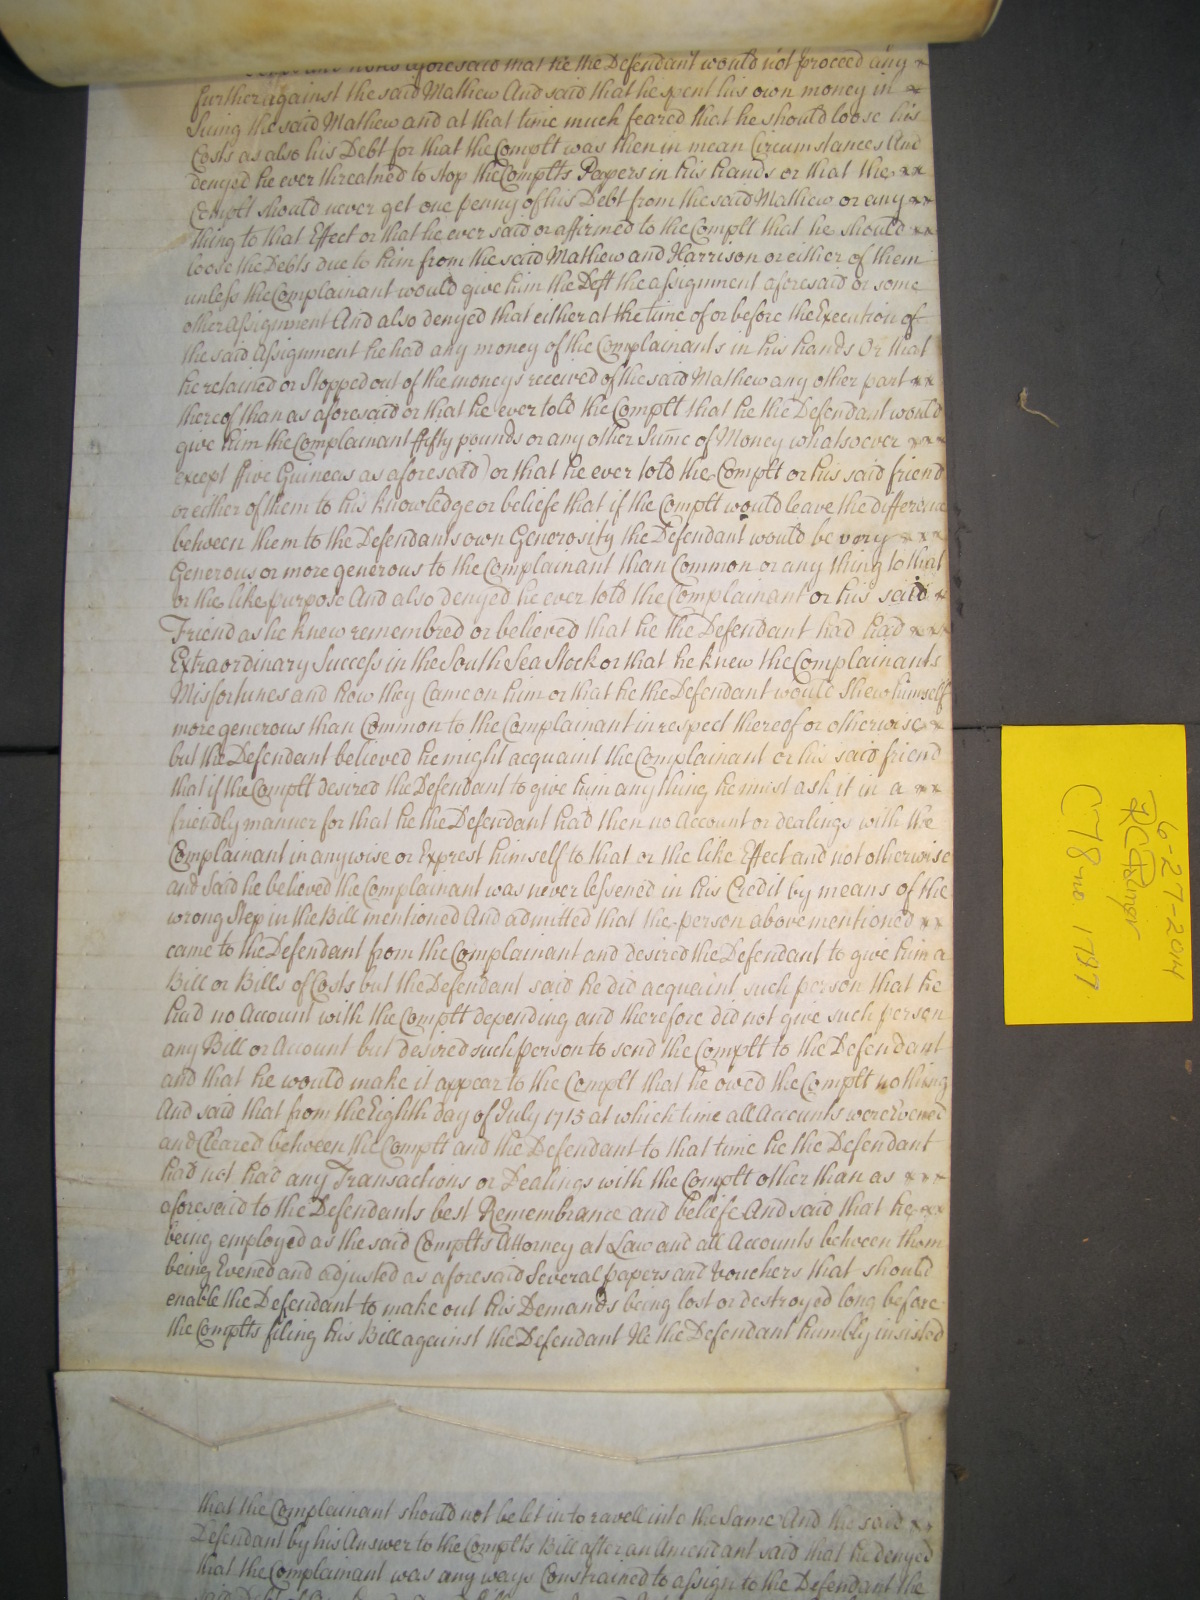 aforesaid that he the Defendant would not proceed any
further against the said Mathew And said that he spent his own money in
Suing the said Mathew and at that time much feared that he should loose his
Costs as also his Debt for that the Complt was then in mean Circumstances And
denyed he ever threatned to stop the Complts Papers in his hands or that the
Complt should never get one penny of his Debt from the said Mathew or any
thing to that Effect or that he ever said or affirmed to the Complt that he should
loose the Debts due to him from the said Mathew and Harrison or either of them
unless the Complainant would give him the Deft the assignment aforesaid or some
other assignment And also denyed that either at the time of or before the Execution of
the said assignment he had any money of the Complainants in his hands Or that
he retained or Stopped out of the moneys received of the said Mathew any other part
thereof than as aforesaid or that he ever told the Complt that he the Defendant would
give him the Complainant ffifty pounds or any other Sume of Money whatsoever
except ffive Guineas as aforesaid) or that he ever told the Complt or his said friend
or either of them to his knowledge or beliefe that if the Complt would leave the difference
between them to the Defendants own Generosity the Defendant would be very
Generous or more generous to the Complainant than Common or any thing to that
or the like purpose And also denyed he ever told the Complainant or his said
Friend as he knew remembred or believed that he the Defendant had had
Extraordinary Success in the South Sea Stock or that he knew the Complainants
Misfortunes and how they Came on him or that he the Defendant would shew himself
more generous than Common to the Complainant in respect thereof or otherwise
but the Defendant believed he might acquaint the Complainant or his said friend
that if the Complt desired the Defendant to give him any thing he must ask it in a
friendly manner for that he the Defendant had then no Account or dealings with the
Complainant in anywise or Exprest himself to that or the like Effect and not otherwise
and said he believed the Complainant was never lessened in his Credit by means of the
wrong Step in the Bill mentioned And admitted that the person above mentioned
came to the Defendant from the Complainant and desired the Defendant to give him a
Bill or Bills of Costs but the Defendant said he did acquaint such person that he
had no Account with the Complt depending and therefore did not give such person
any Bill or Account but desired such person to send the Complt to the Defendant
and that he would make it appear to the Complt that he owed the Complt nothing
And said that from the Eighth day of July 1715 at which time all Accounts were Evened
and Cleared between the Complt and the Defendant to that time he the Defendant
had not had any Transactions or Dealings with the Complt other than as
aforesaid to the Defendants best Remembrance and beliefe And said that he
being employed as the said Complts Attorney at Law and all Accounts between them
being Evened and adjusted as aforesaid Several papers and vouchers that should
enable the Defendant to make out his Demands being lost or destroyed long before
the Complts filing his Bill against the Defendant He the Defendant humbly insisted
that the Complainant should not be let in to ravell into the Same And the said
Defendant by his Answer to the Complts Bill after an Amendant said that he denyed
that the Complainant was any ways Constrained to assign to the Defendant the
6-27-2014
C78 no. 1797